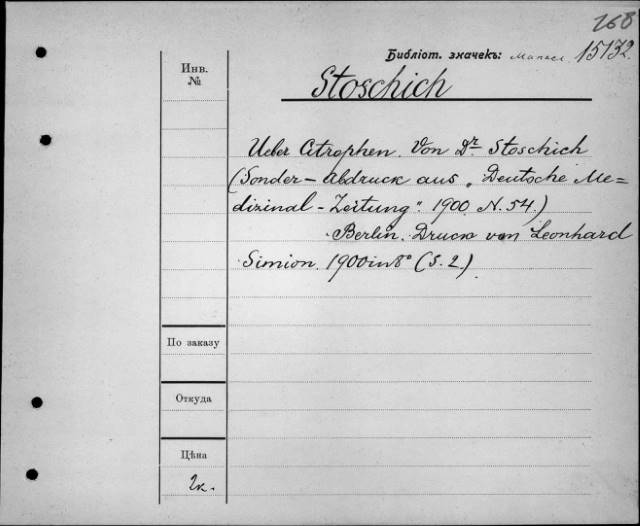 268
Библіот. значекъ: 15132
Инв. №
Stoschich
Ueber Citrophen. Von Dr. Stoschich
(Sonder-Abdruck aus „Deutsche Me=
dizinal-Zeitung". 1900. N. 54.)
Berlin. Druck von Leonhard
Simion. 1900 in 8° (S. 2.)
По заказу
Откуда
Цѣна
2к.